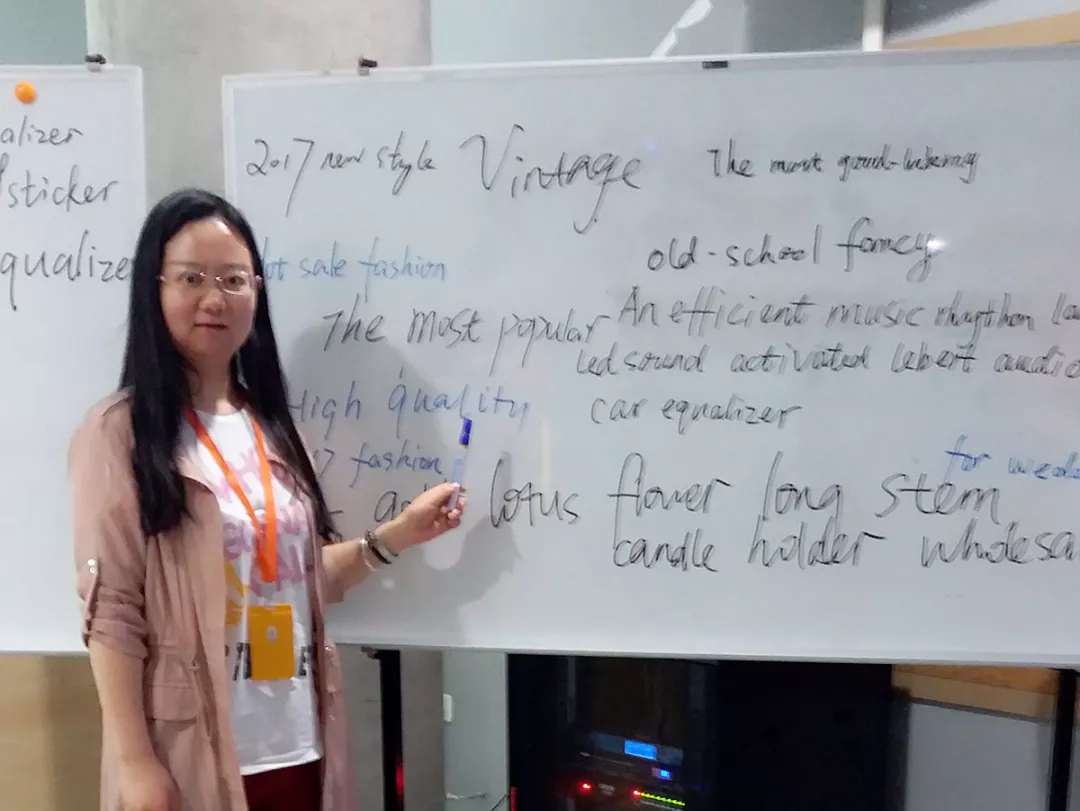 alizer
sticker
qualize
2017 new style Vintage The most good-looking
old-school fancy
ot sale fashion
The most popular An efficient music rhythm la
led sound activated audio
High quality car equalizer
17 fashion for wedd
lotus flower long stem
candle holder wholesa